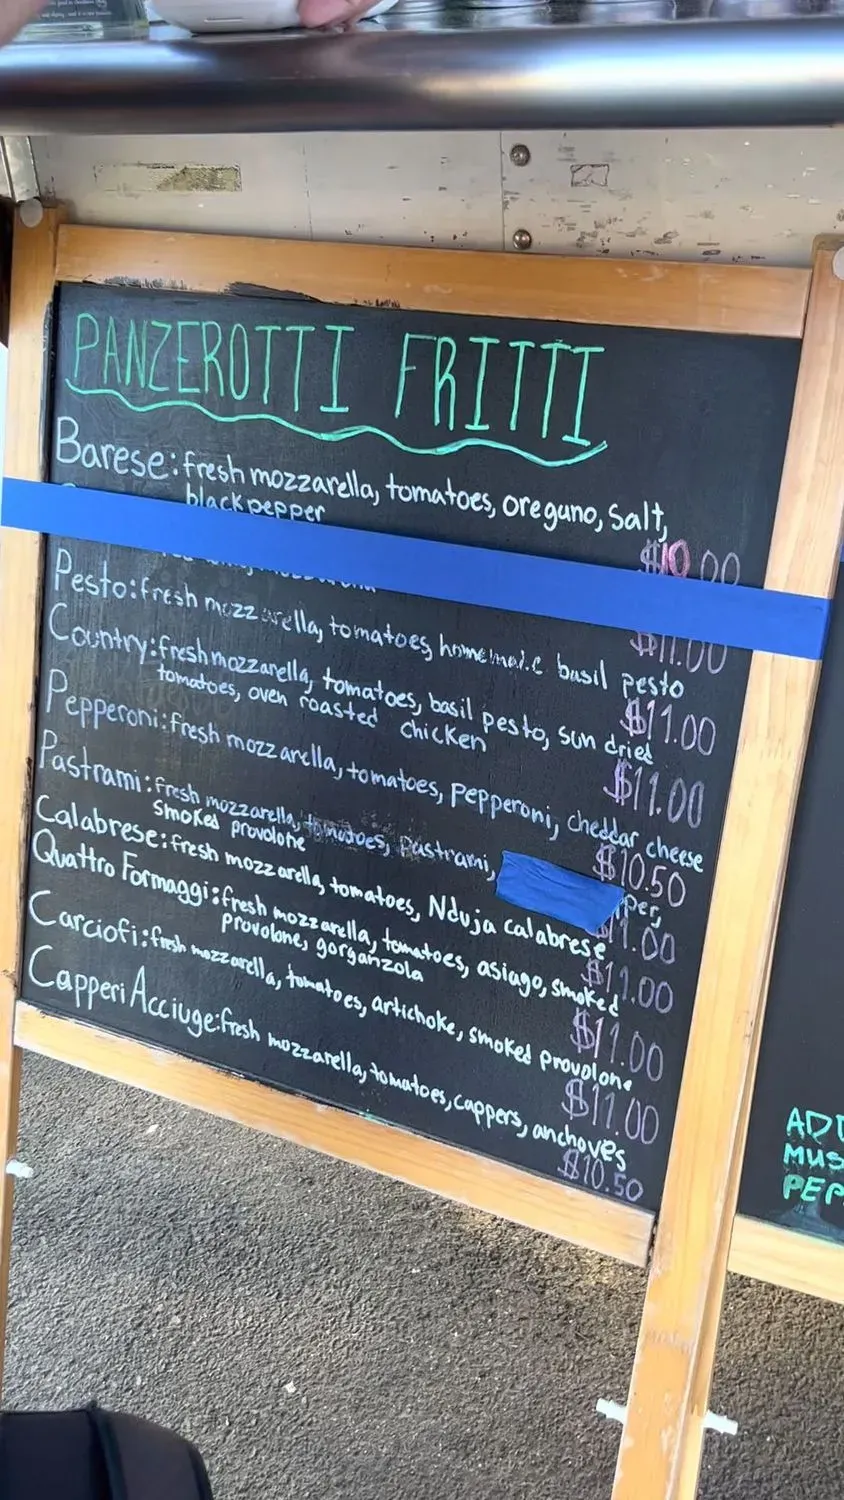 PANZEROTTI FRITTI
Barese: fresh mozzarella, tomatoes, oregano, salt,
black pepper
$10.00
$11.00
Pesto: fresh mozzarella, tomatoes, homemade basil pesto
$11.00
Country: fresh mozzarella, tomatoes, basil pesto, sun dried
tomatoes, oven roasted chicken
$11.00
Pepperoni: fresh mozzarella, tomatoes, pepperoni, cheddar cheese
$10.50
Pastrami: fresh mozzarella, tomatoes, pastrami,
smoked provolone
$11.00
Calabrese: fresh mozzarella, tomatoes, Nduja calabrese
$11.00
Quattro Formaggi: fresh mozzarella, tomatoes, asiago, smoked
provolone, gorganzola
$11.00
Carciofi: fresh mozzarella, tomatoes, artichoke, smoked provolone
$11.00
Capperi Acciuge: fresh mozzarella, tomatoes, cappers, anchoves
$10.50